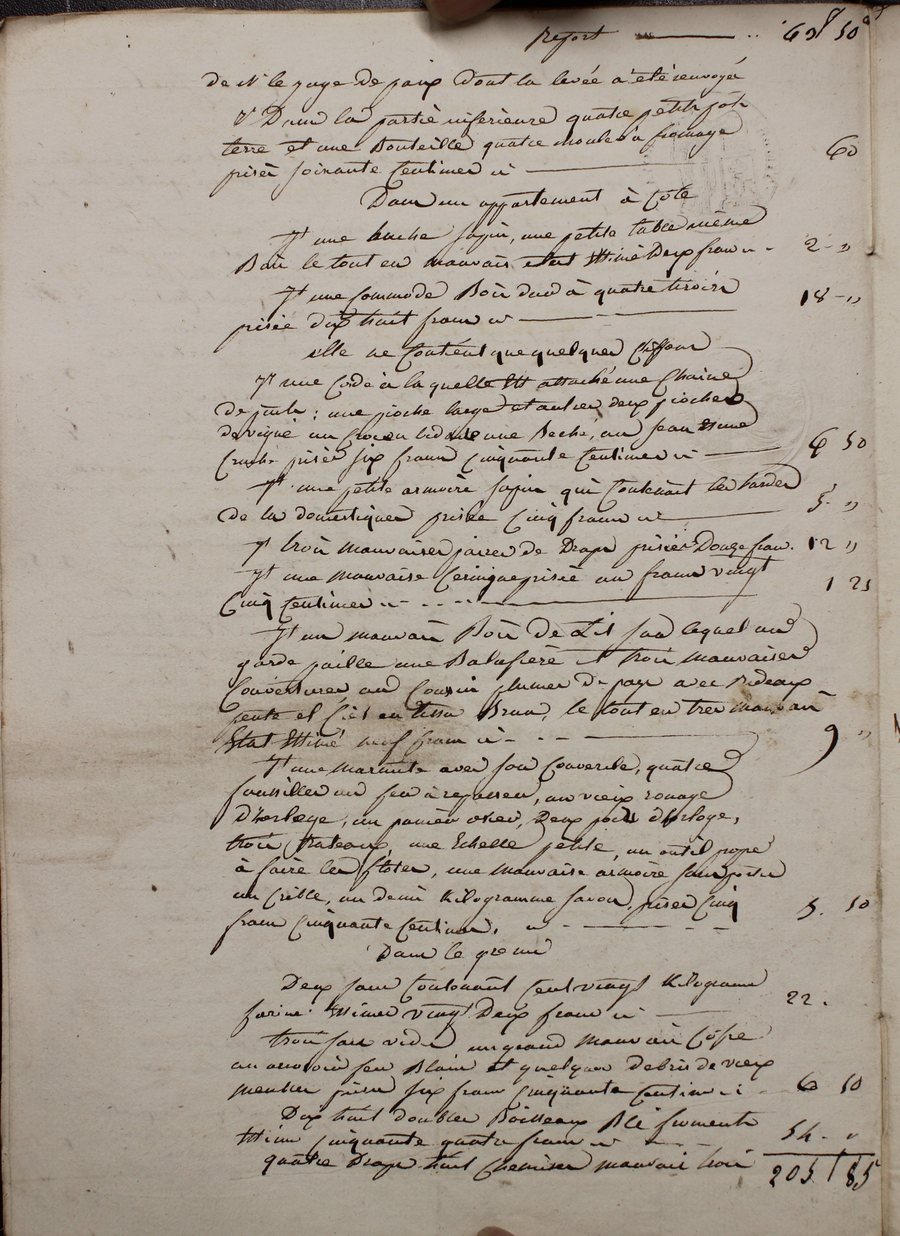 report 60 50
de Mr le juge de paix dont la levée a été renvoyée
Dans la partie inférieure quatre petits pots
terre et une Bouteille quatre moules à fromage
prisés soixante Centimes 60
Dans un appartement à Coté
Yt une huche sapin, une petite table même
Bois le tout en mauvais état Estimé Deux francs 2 "
Yt une Commode Bois dur à quatre tiroirs
prisée dix huit francs 18 "
elle ne Contient que quelques chiffons
Yt une Corde à la quelle Est attachée une Chaine
de puits: une pioche large et autres deux pioches
de vigne un une Beche, un Seau Et une
Cruche prisés six francs Cinquante Centimes 6 50
Yt une petite armoire sapin qui Contenait les hardes
de la domestique prisée Cinq francs 5 "
Yt trois mauvaises paires de Draps prisés Douze francs 12 "
Yt une mauvaise Ceringue prisée un franc vingt
Cinq Centimes 1 25
Yt un mauvais Bois de Lit sur lequel un
garde paille une Balafière et trois mauvaises
Couvertures un Cousin plumes de pays avec Rideaux
pente et Ciel en tissu Brun, le tout en tres mauvais
Etat Estimé neuf francs 9 "
Yt une marmite avec son Couvercle, quatre
faucilles un fer à repasser, un vieux rouage
d'horloge, un panier osier, Deux poids d'horloge,
trois rateaux, une Echelle petite, un outil propre
à faire les, une mauvaise armoire sans portes
un Crible, un demi Kilogramme Savon, prisés Cinq
francs Cinquante Centimes. 5. 50
Dans le grenier
Deux sacs Contenant Cent vingt Kilogrammes
farine Estimés vingt Deux francs 22.
trois sacs vides un grand mauvais Coffre
un arrosoir fer Blanc et quelques debris de vieux
meubles prisés six francs Cinquante Centimes 6 50
Dix huit doubles Boisseaux Blé froment
Estimés Cinquante quatre francs 54 "
quatre Draps huit Chemises mauvais trois 205 85